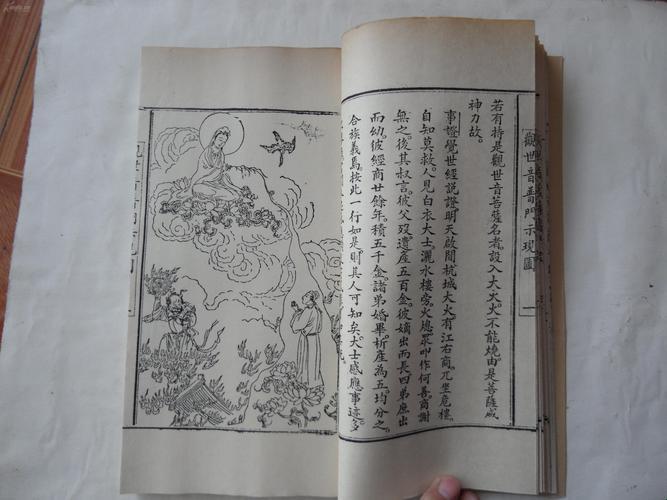 觀世音普門示現圖 一
若有持是觀世音菩薩名者。設入大火。火不能燒。由是菩薩威
神力故。
事證覺世經説證明天啟間。杭城大火。有江右商。兀坐危樓。
自知莫救。人見白衣大士。灑水樓旁。火熄。衆叩作何善。商謝
無之。後其叔言。彼父沒。遺産五百金。彼嫡出而長。四弟庶出
而幼。彼經商廿餘年。積五千金。諸弟婚畢。析産為五。均分之。
合族義焉。按此一行。如是。則其人可知矣。大士感應事迹多